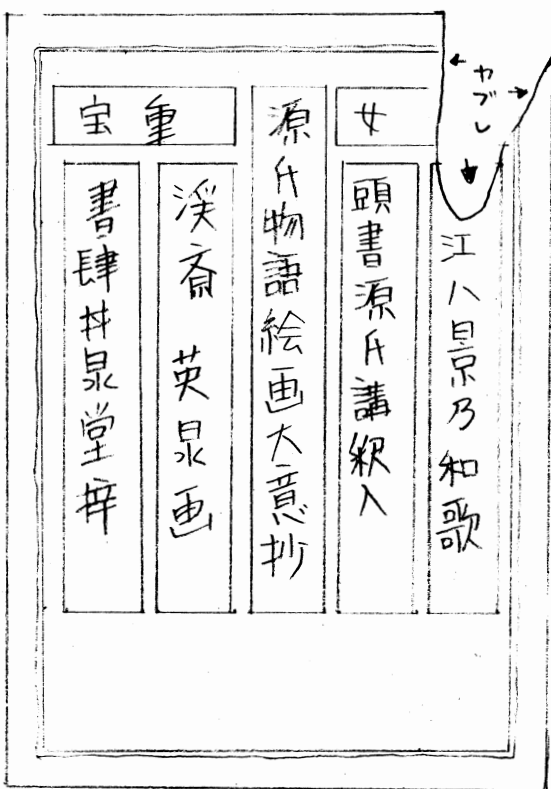 ヤブレ
江八景乃和歌
女
頭書源氏講釈入
源氏物語絵画大意抄
重宝
渓斎 英泉画
書肆丼泉堂梓